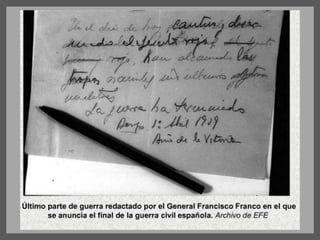 En el día de hoy, cautivo y desar
mado el ejército rojo,
rojo, han alcanzado las
tropas nacionales sus ultimos objetivos
militares
La guerra ha terminado
Burgos 1º Abril 1939
Año de la Victoria
Último parte de guerra redactado por el General Francisco Franco en el que
se anuncia el final de la guerra civil española. Archivo de EFE